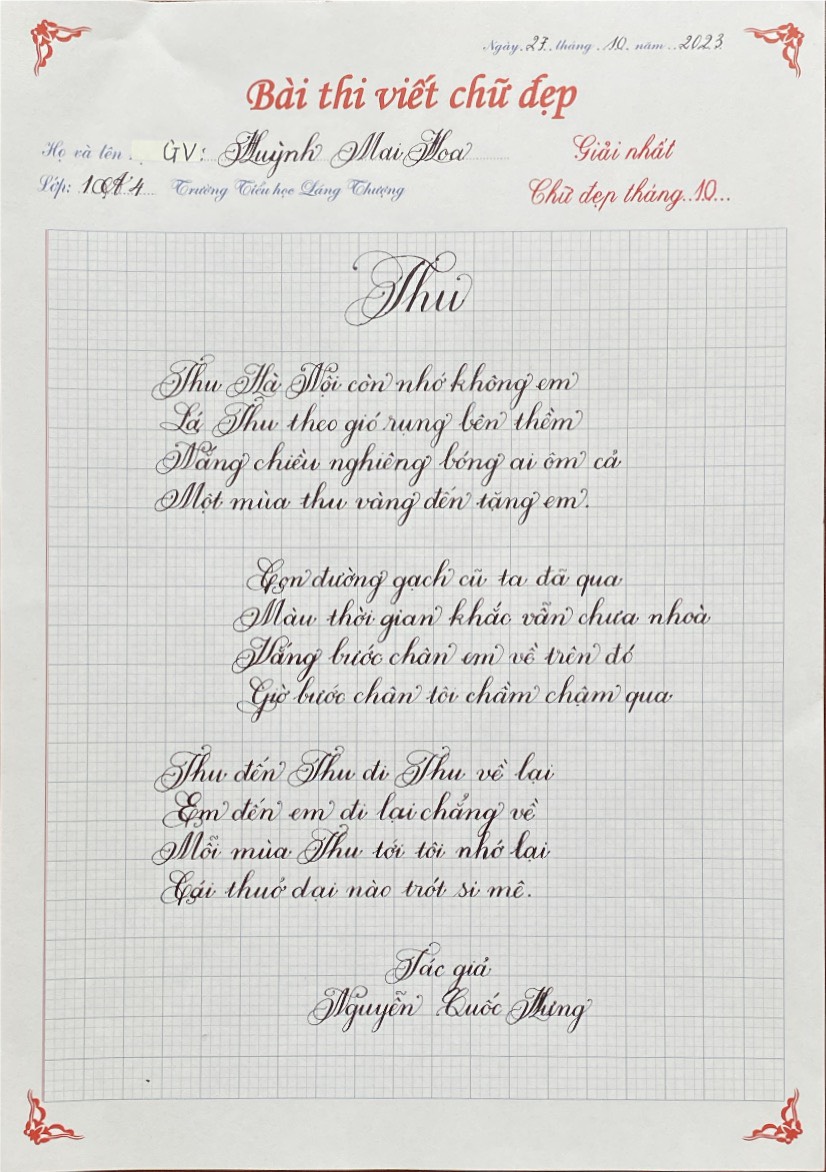 Ngày.27..tháng .10. năm ..2023
Bài thi viết chữ đẹp
Họ và tên .. GV: Huỳnh Mai Hoa
Giải nhất
Lớp: 10A4 Trường Tiểu học Láng Thượng
Chữ đẹp tháng..10...
Thu
Thu Hà Nội còn nhớ không em
Lá Thu theo gió rụng bên thềm
Nắng chiều nghiêng bóng ai ôm cả
Một mùa thu vàng đến tặng em.
Con đường gạch cũ ta đã qua
Màu thời gian khắc vẫn chưa nhoà
Vắng bước chân em về trên đó
Giờ bước chân tôi chầm chậm qua
Thu đến Thu đi Thu về lại
Em đến em đi lại chẳng về
Mỗi mùa Thu tới tôi nhớ lại
Cái thuở dại nào trót si mê.
Tác giả
Nguyễn Quốc Hưng